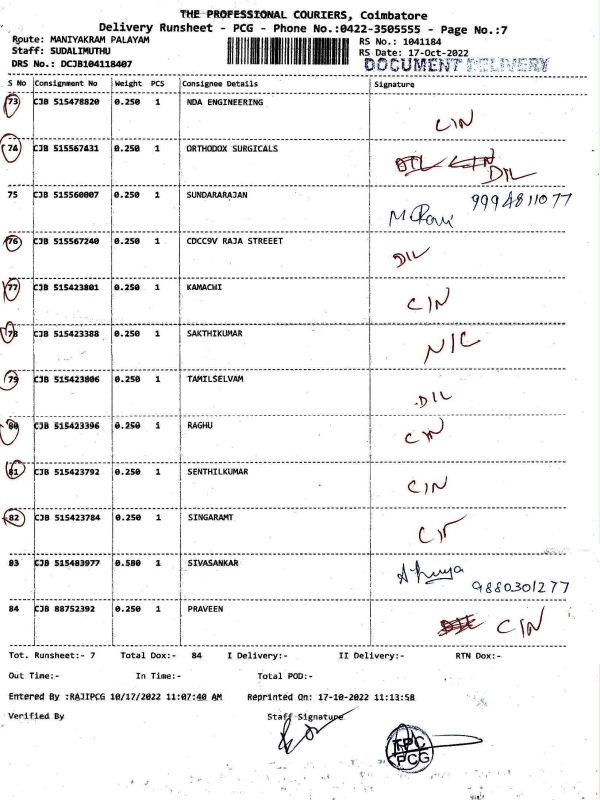 THE PROFESSIONAL COURIERS, Coimbatore
Delivery Runsheet - PCG - Phone No.:0422-3505555 - Page No.:7
Route: MANIYAKRAM PALAYAM RS No.: 1041184
Staff: SUDALIMUTHU RS Date: 17-Oct-2022
DRS No.: DCJB104118407 DOCUMENT DELIVERY
S No Consignment No Weight PCS Consignee Details Signature
73 CJB 515478820 0.250 1 NDA ENGINEERING
CIN
74 CJB 515567431 0.250 1 ORTHODOX SURGICALS
DIL CIN DIL
75 CJB 515560007 0.250 1 SUNDARARAJAN 9994811077
76 CJB 515567240 0.250 1 CDCC9V RAJA STREEET
DIL
77 CJB 515423801 0.250 1 KAMACHI
CIN
78 CJB 515423388 0.250 1 SAKTHIKUMAR
N/C
79 CJB 515423806 0.250 1 TAMILSELVAM
DIL
80 CJB 515423396 0.250 1 RAGHU
CIN
81 CJB 515423792 0.250 1 SENTHILKUMAR
CIN
82 CJB 515423784 0.250 1 SINGARAMT
83 CJB 515483977 0.580 1 SIVASANKAR
9880301277
84 CJB 88752392 0.250 1 PRAVEEN
CIN
Tot. Runsheet:- 7 Total Dox:- 84 I Delivery:- II Delivery:- RTN Dox:-
Out Time:- In Time:- Total POD:-
Entered By :RAJIPCG 10/17/2022 11:07:40 AM Reprinted On: 17-10-2022 11:13:58
Verified By Staff Signature
TPC
PCG